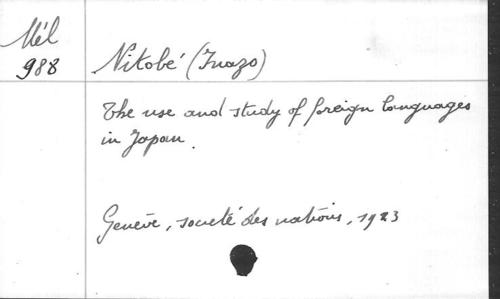 Mél
988
Nitobé (Inazo)
The use and study of foreign languages
in Japan.
Genève, société des nations, 1923